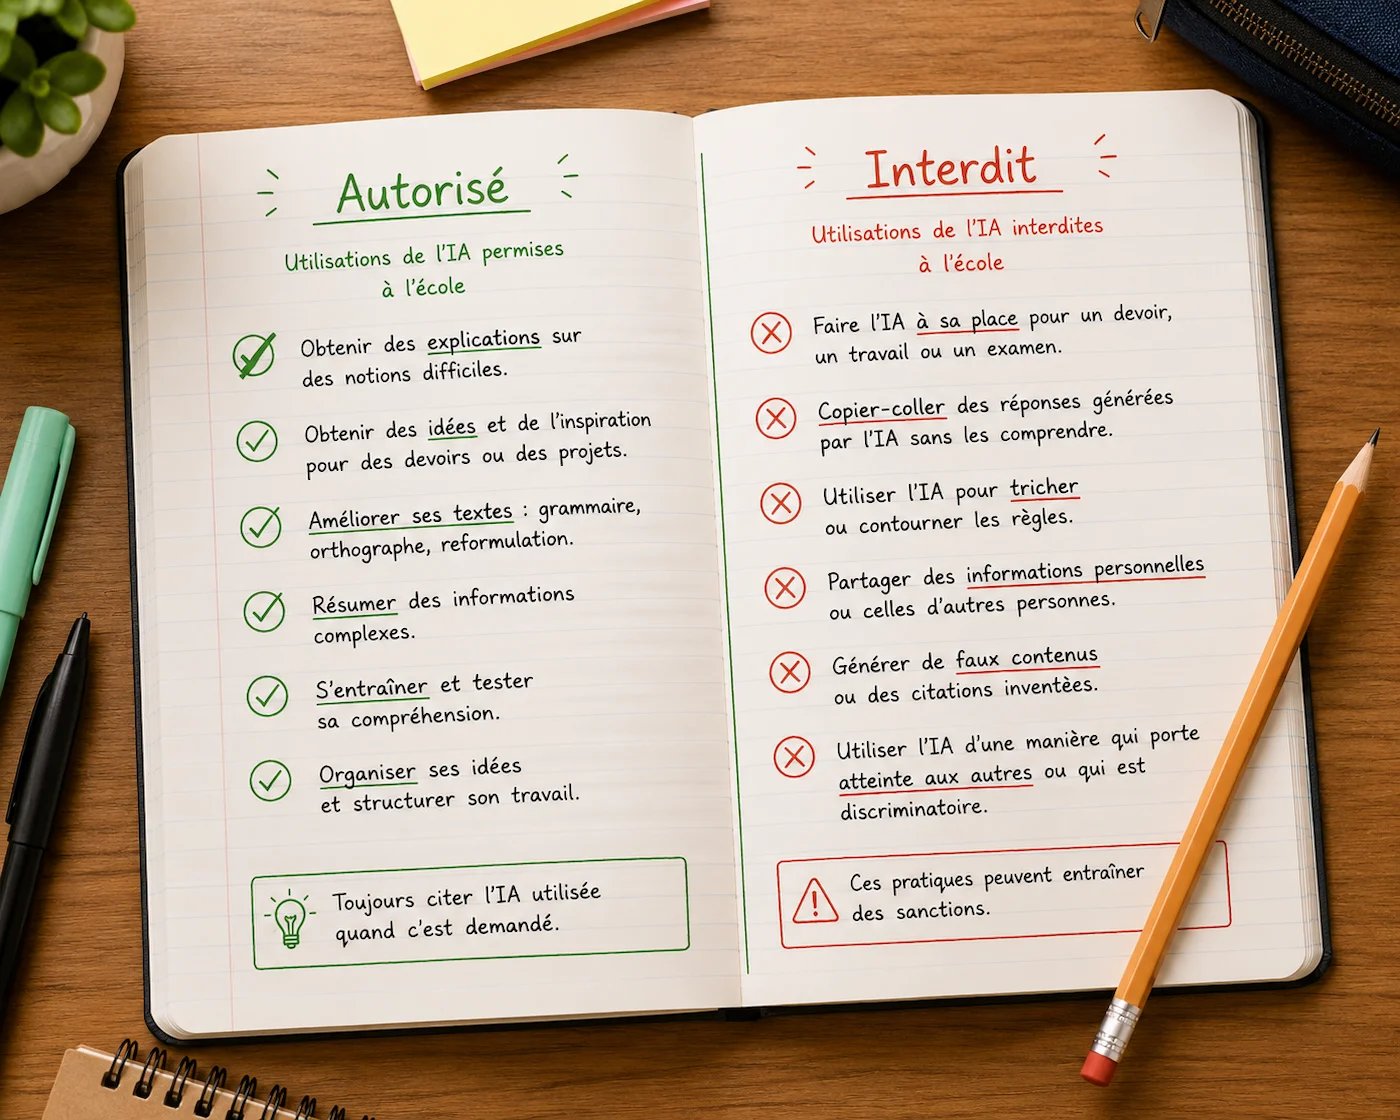 Autorisé
Utilisations de l'IA permises
à l'école
Obtenir des explications sur
des notions difficiles.
Obtenir des idées et de l'inspiration
pour des devoirs ou des projets.
Améliorer ses textes : grammaire,
orthographe, reformulation.
Résumer des informations
complexes.
S'entraîner et tester
sa compréhension.
Organiser ses idées
et structurer son travail.
Toujours citer l'IA utilisée
quand c'est demandé.
Interdit
Utilisations de l'IA interdites
à l'école
Faire l'IA à sa place pour un devoir,
un travail ou un examen.
Copier-coller des réponses générées
par l'IA sans les comprendre.
Utiliser l'IA pour tricher
ou contourner les règles.
Partager des informations personnelles
ou celles d'autres personnes.
Générer de faux contenus
ou des citations inventèes.
Utiliser l'IA d'une manière qui porte
atteinte aux autres ou qui est
discriminatoire.
Ces pratiques peuvent entraîner
des sanctions.